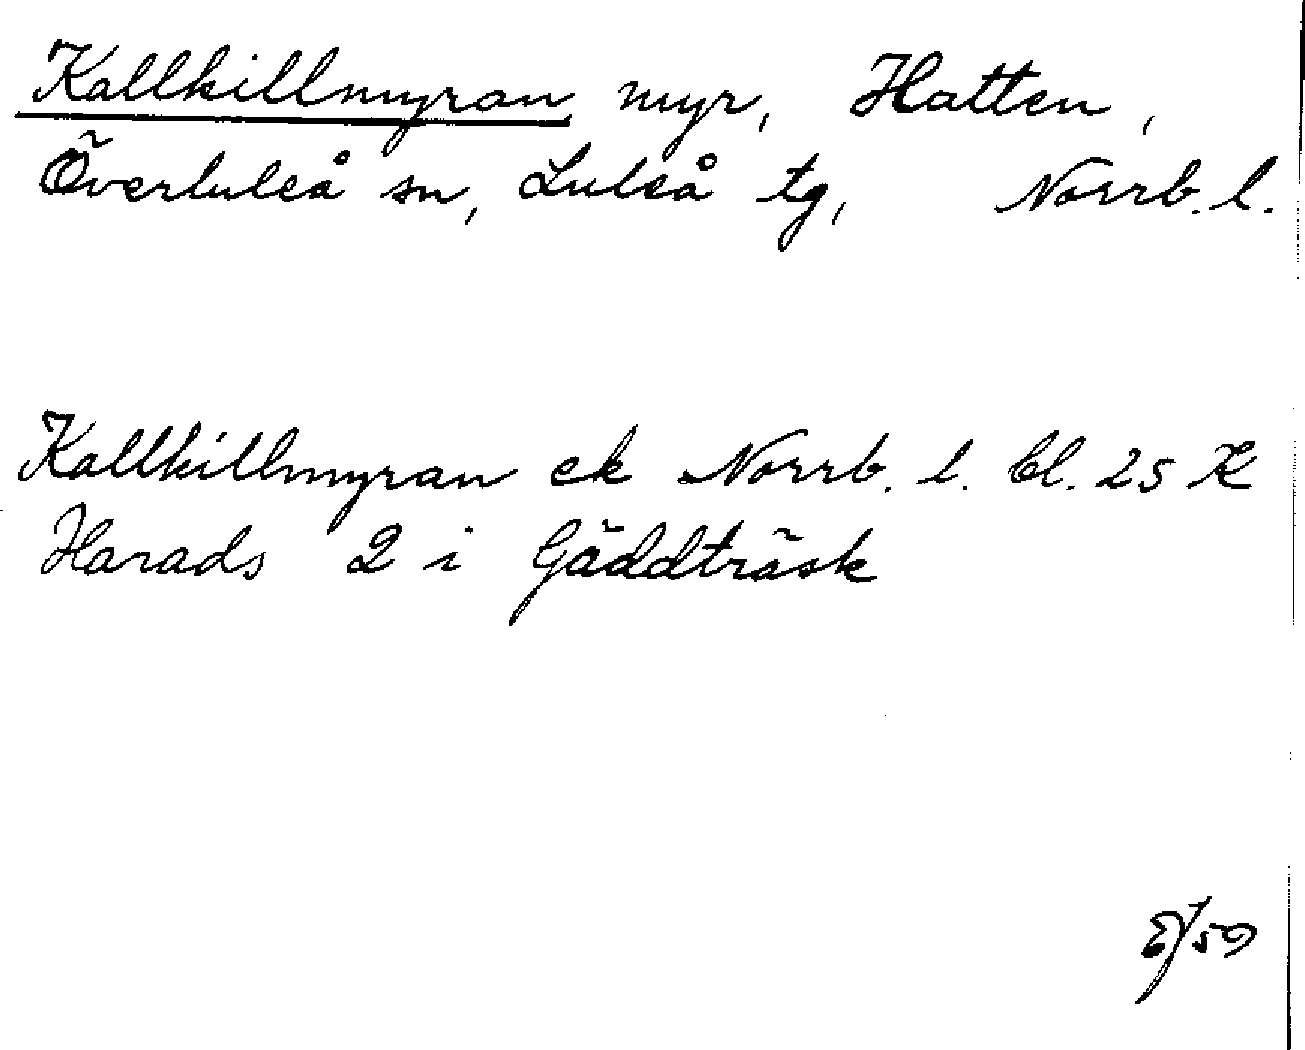 Kallkillmyran myr, Hatten,
Överluleå sn, Luleå tg, Norrb. l.
Kallkillmyran ek Norrb. l. bl. 25 K
Harads 2 i Gäddträsk
/59